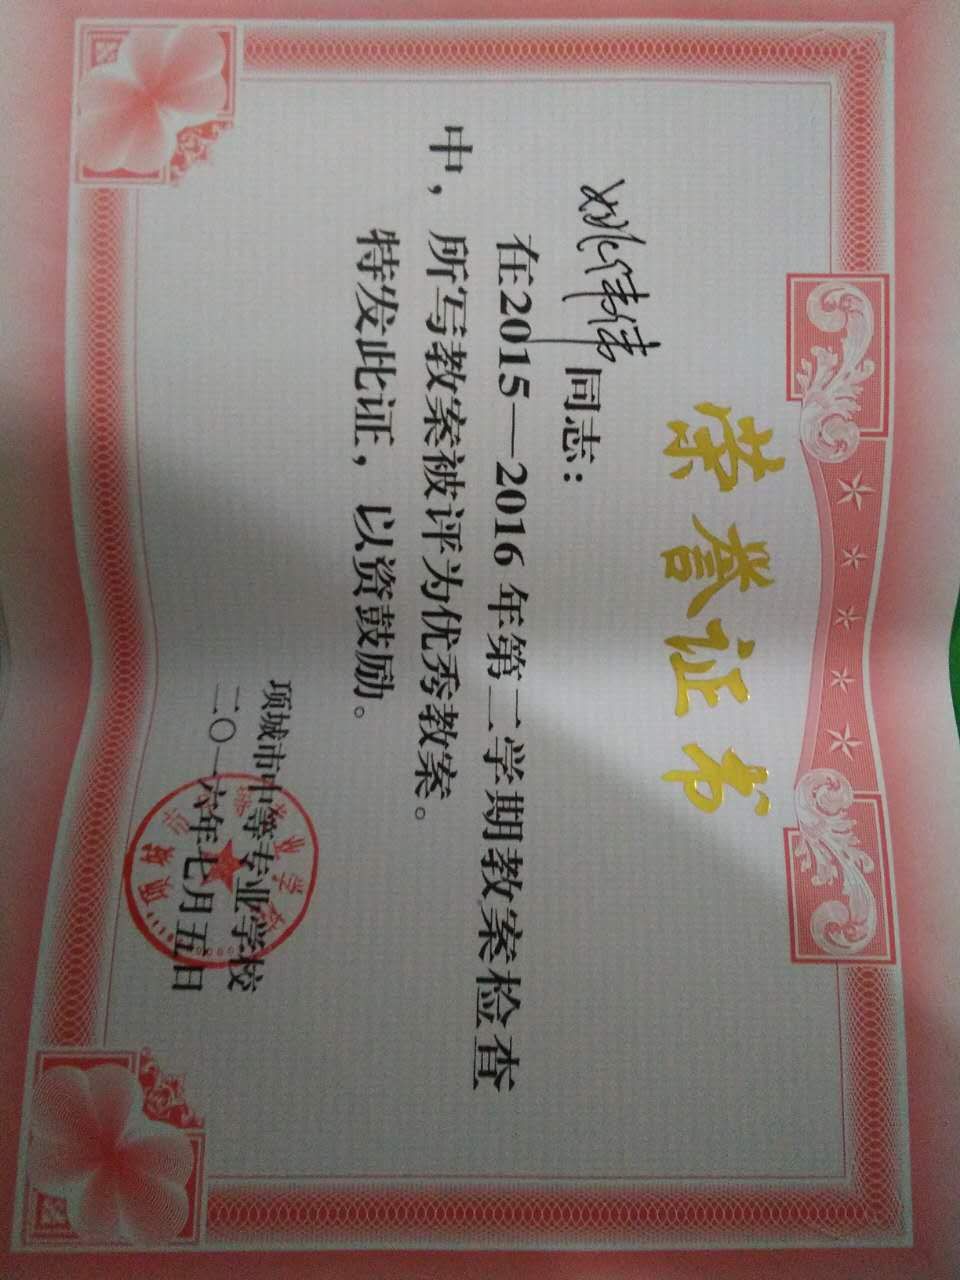 荣誉证书
姚伟伟同志：
在2015—2016年第二学期教案检查
中，所写教案被评为优秀教案。
特发此证，以资鼓励。
项城市中等专业学校
二〇一六年七月五日